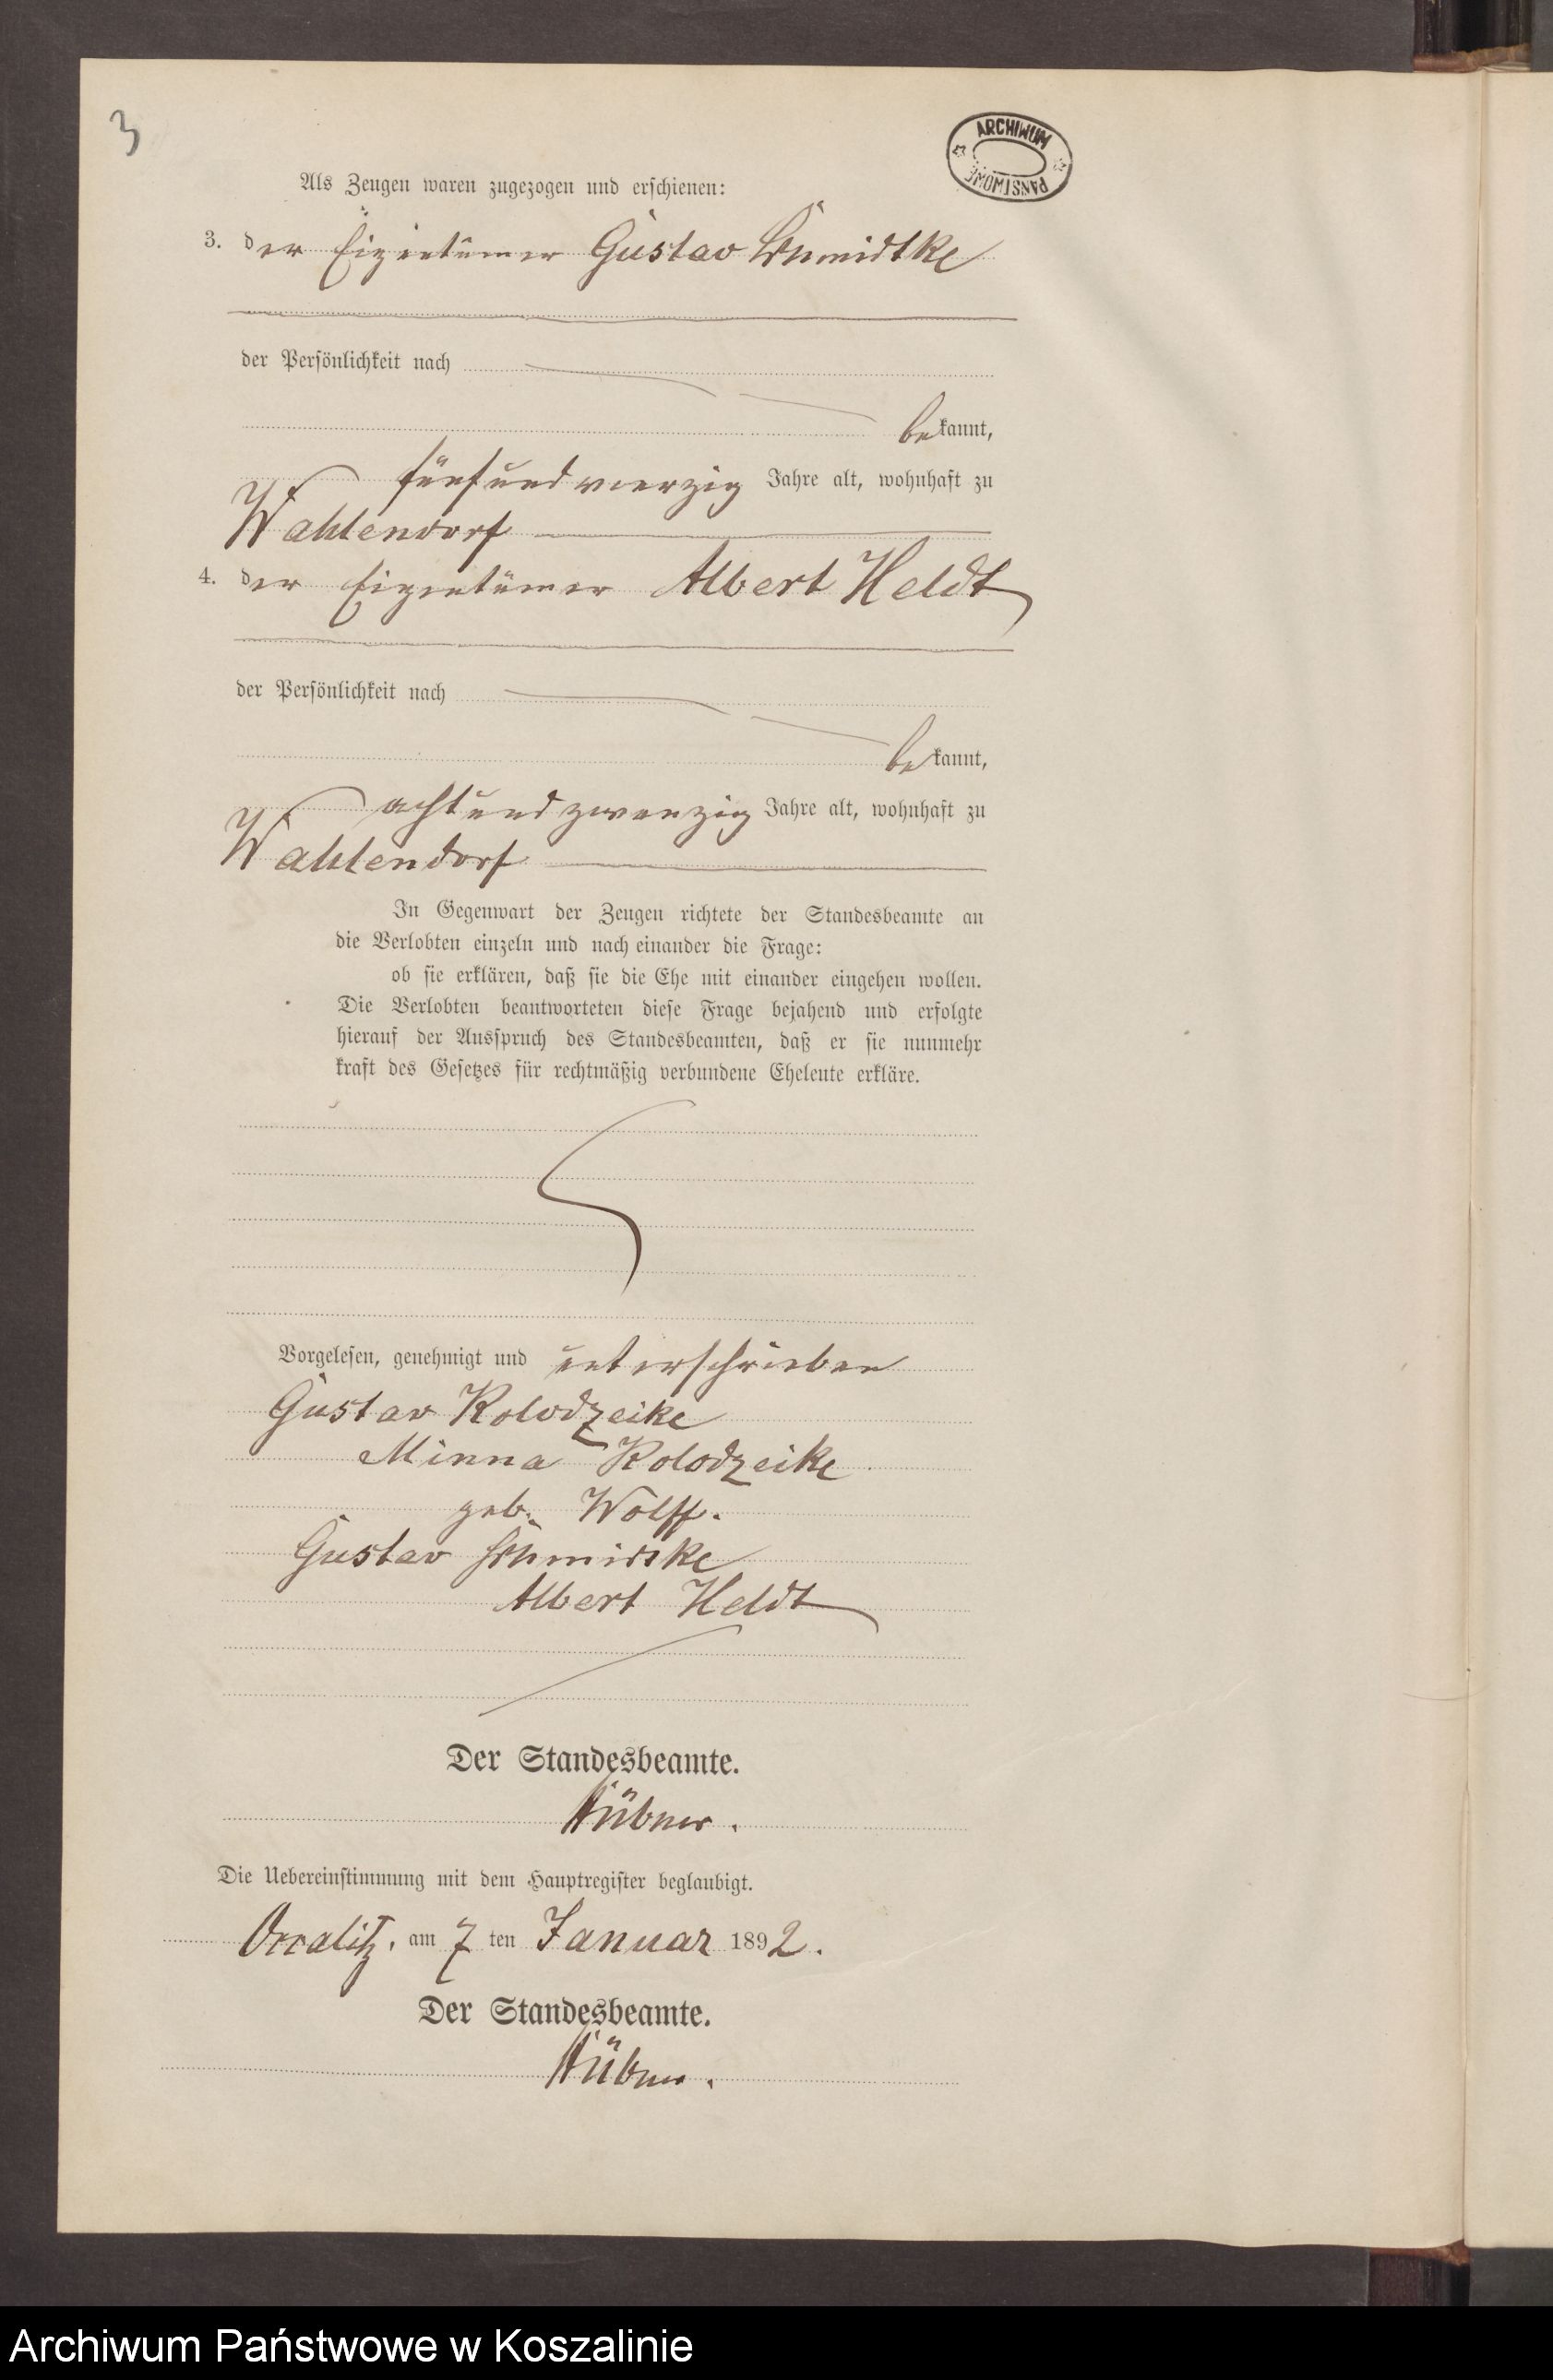 3
ARCHIWUM PAŃSTWOWE
Als Zeugen waren zugezogen und erschienen:
3. der Eigentümer Gustav Schmidtke
der Persönlichkeit nach
bekannt,
fünfundvierzig Jahre alt, wohnhaft zu
Wahlendorf
4. der Eigentümer Albert Heldt
der Persönlichkeit nach
bekannt,
achtundzwanzig Jahre alt, wohnhaft zu
Wahlendorf
In Gegenwart der Zeugen richtete der Standesbeamte an
die Verlobten einzeln und nach einander die Frage:
ob sie erklären, daß sie die Ehe mit einander eingehen wollen.
Die Verlobten beantworteten diese Frage bejahend und erfolgte
hierauf der Ausspruch des Standesbeamten, daß er sie nunmehr
kraft des Gesetzes für rechtmäßig verbundene Eheleute erkläre.
Vorgelesen, genehmigt und unterschrieben
Gustav Kolodzeike
Minna Kolodzeike
geb. Wolff.
Gustav Schmidtke
Albert Heldt
Der Standesbeamte.
Hübner.
Die Uebereinstimmung mit dem Hauptregister beglaubigt.
am 7 ten Januar 1892.
Der Standesbeamte.
Hübner.
Archiwum Państwowe w Koszalinie